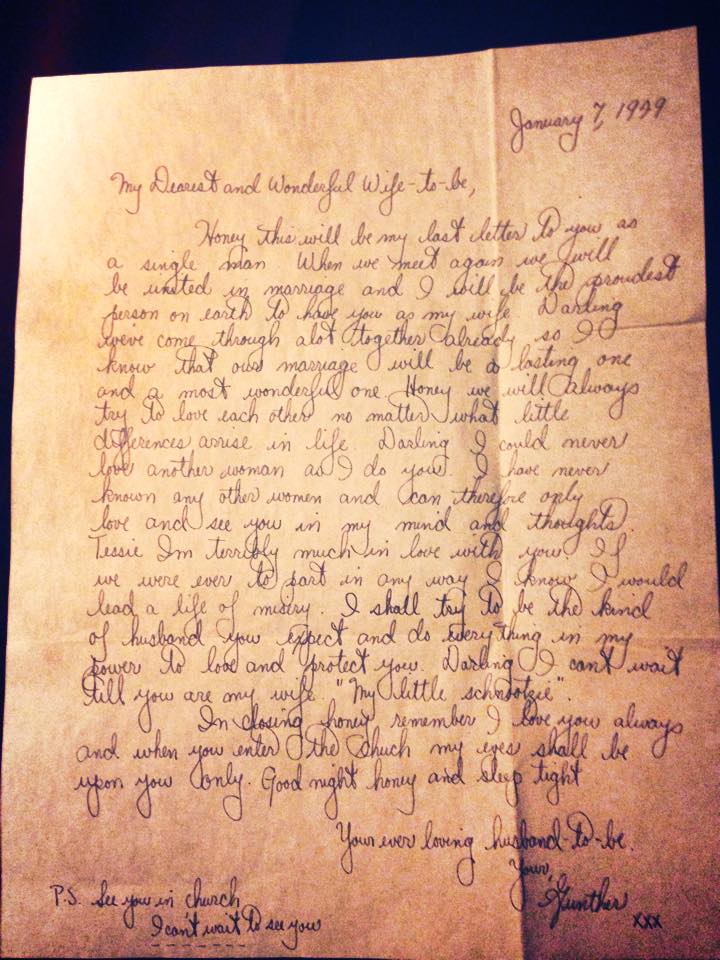 January 7, 1949
My Dearest and Wonderful Wife-to-be,
Honey this will be my last letter to you as
a single man. When we meet again we will
be united in marriage and I will be the proudest
person on earth to have you as my wife. Darling
weve come through alot together already so I
know that our marriage will be a lasting one
and a most wonderful one. Honey we will always
try to love each other no matter what little
differences arrise in life. Darling I could never
love another woman as I do you. I have never
known any other women and can therefore only
love and see you in my mind and thoughts.
Tessie Im terribly much in love with you. If
we were ever to part in any way I know I would
lead a life of misery. I shall try to be the kind
of husband you expect and do everything in my
power to love and protect you. Darling I cant wait
till you are my wife. "My little schnootzie".
In closing honey remember I love you always
and when you enter the chuch my eyes shall be
upon you only. Good night honey and sleep tight
Your ever loving husband-to-be.
Your,
Gunther
xxx
P.S. See you in church
I can't wait to see you